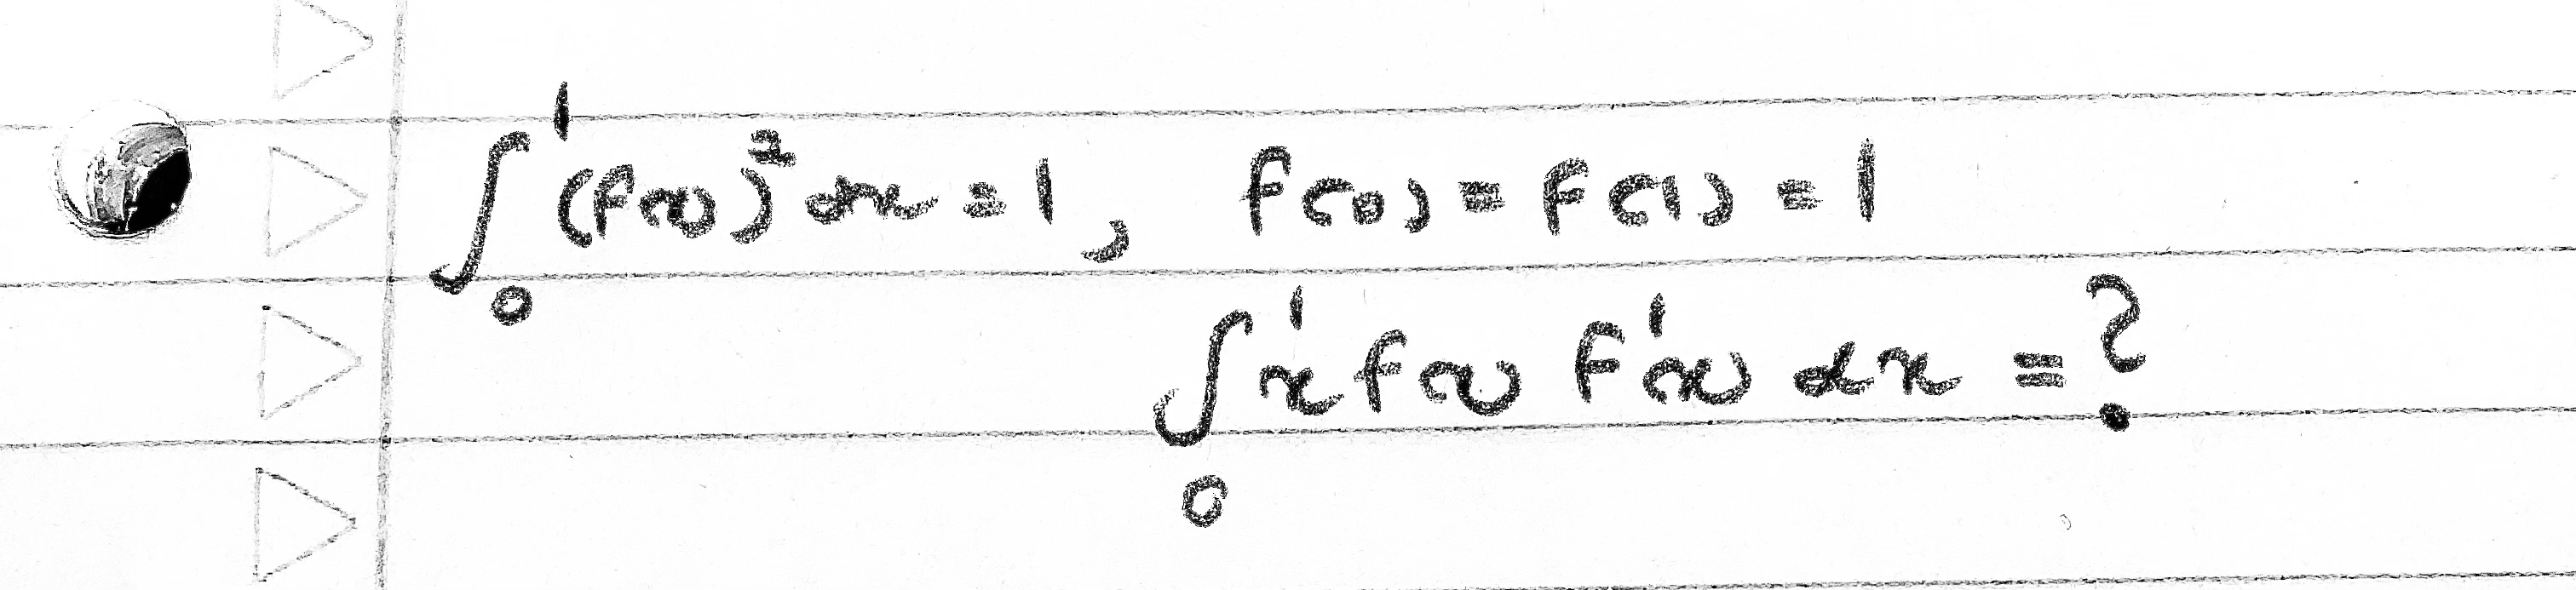 ∫₀¹ (f(x))² dx = 1, f(0) = f(1) = 1
∫₀¹ x f(x) f'(x) dx = ?